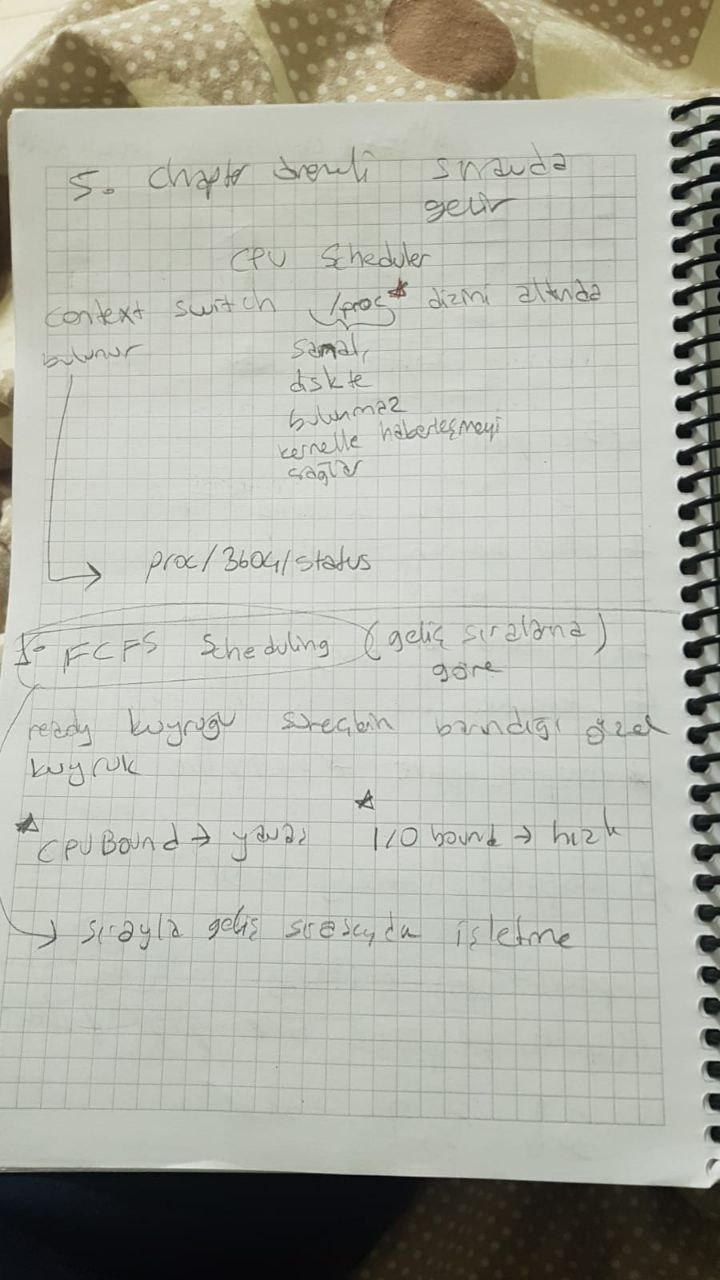 5. Chapter önemli sınavda
gelir
CPU Scheduler
context switch /proc* dizini altında
bulunur
sanal,
diskte
bulunmaz
kernelle haberleşmeyi
sağlar
proc/3604/status
1- FCFS Scheduling (geliş sıralama)
göre
ready kuyruğu süreçlerin barındığı özel
kuyruk
* CPU Bound → yavaş * I/O bound → hızlı
→ sırayla geliş sırasıyla işletme